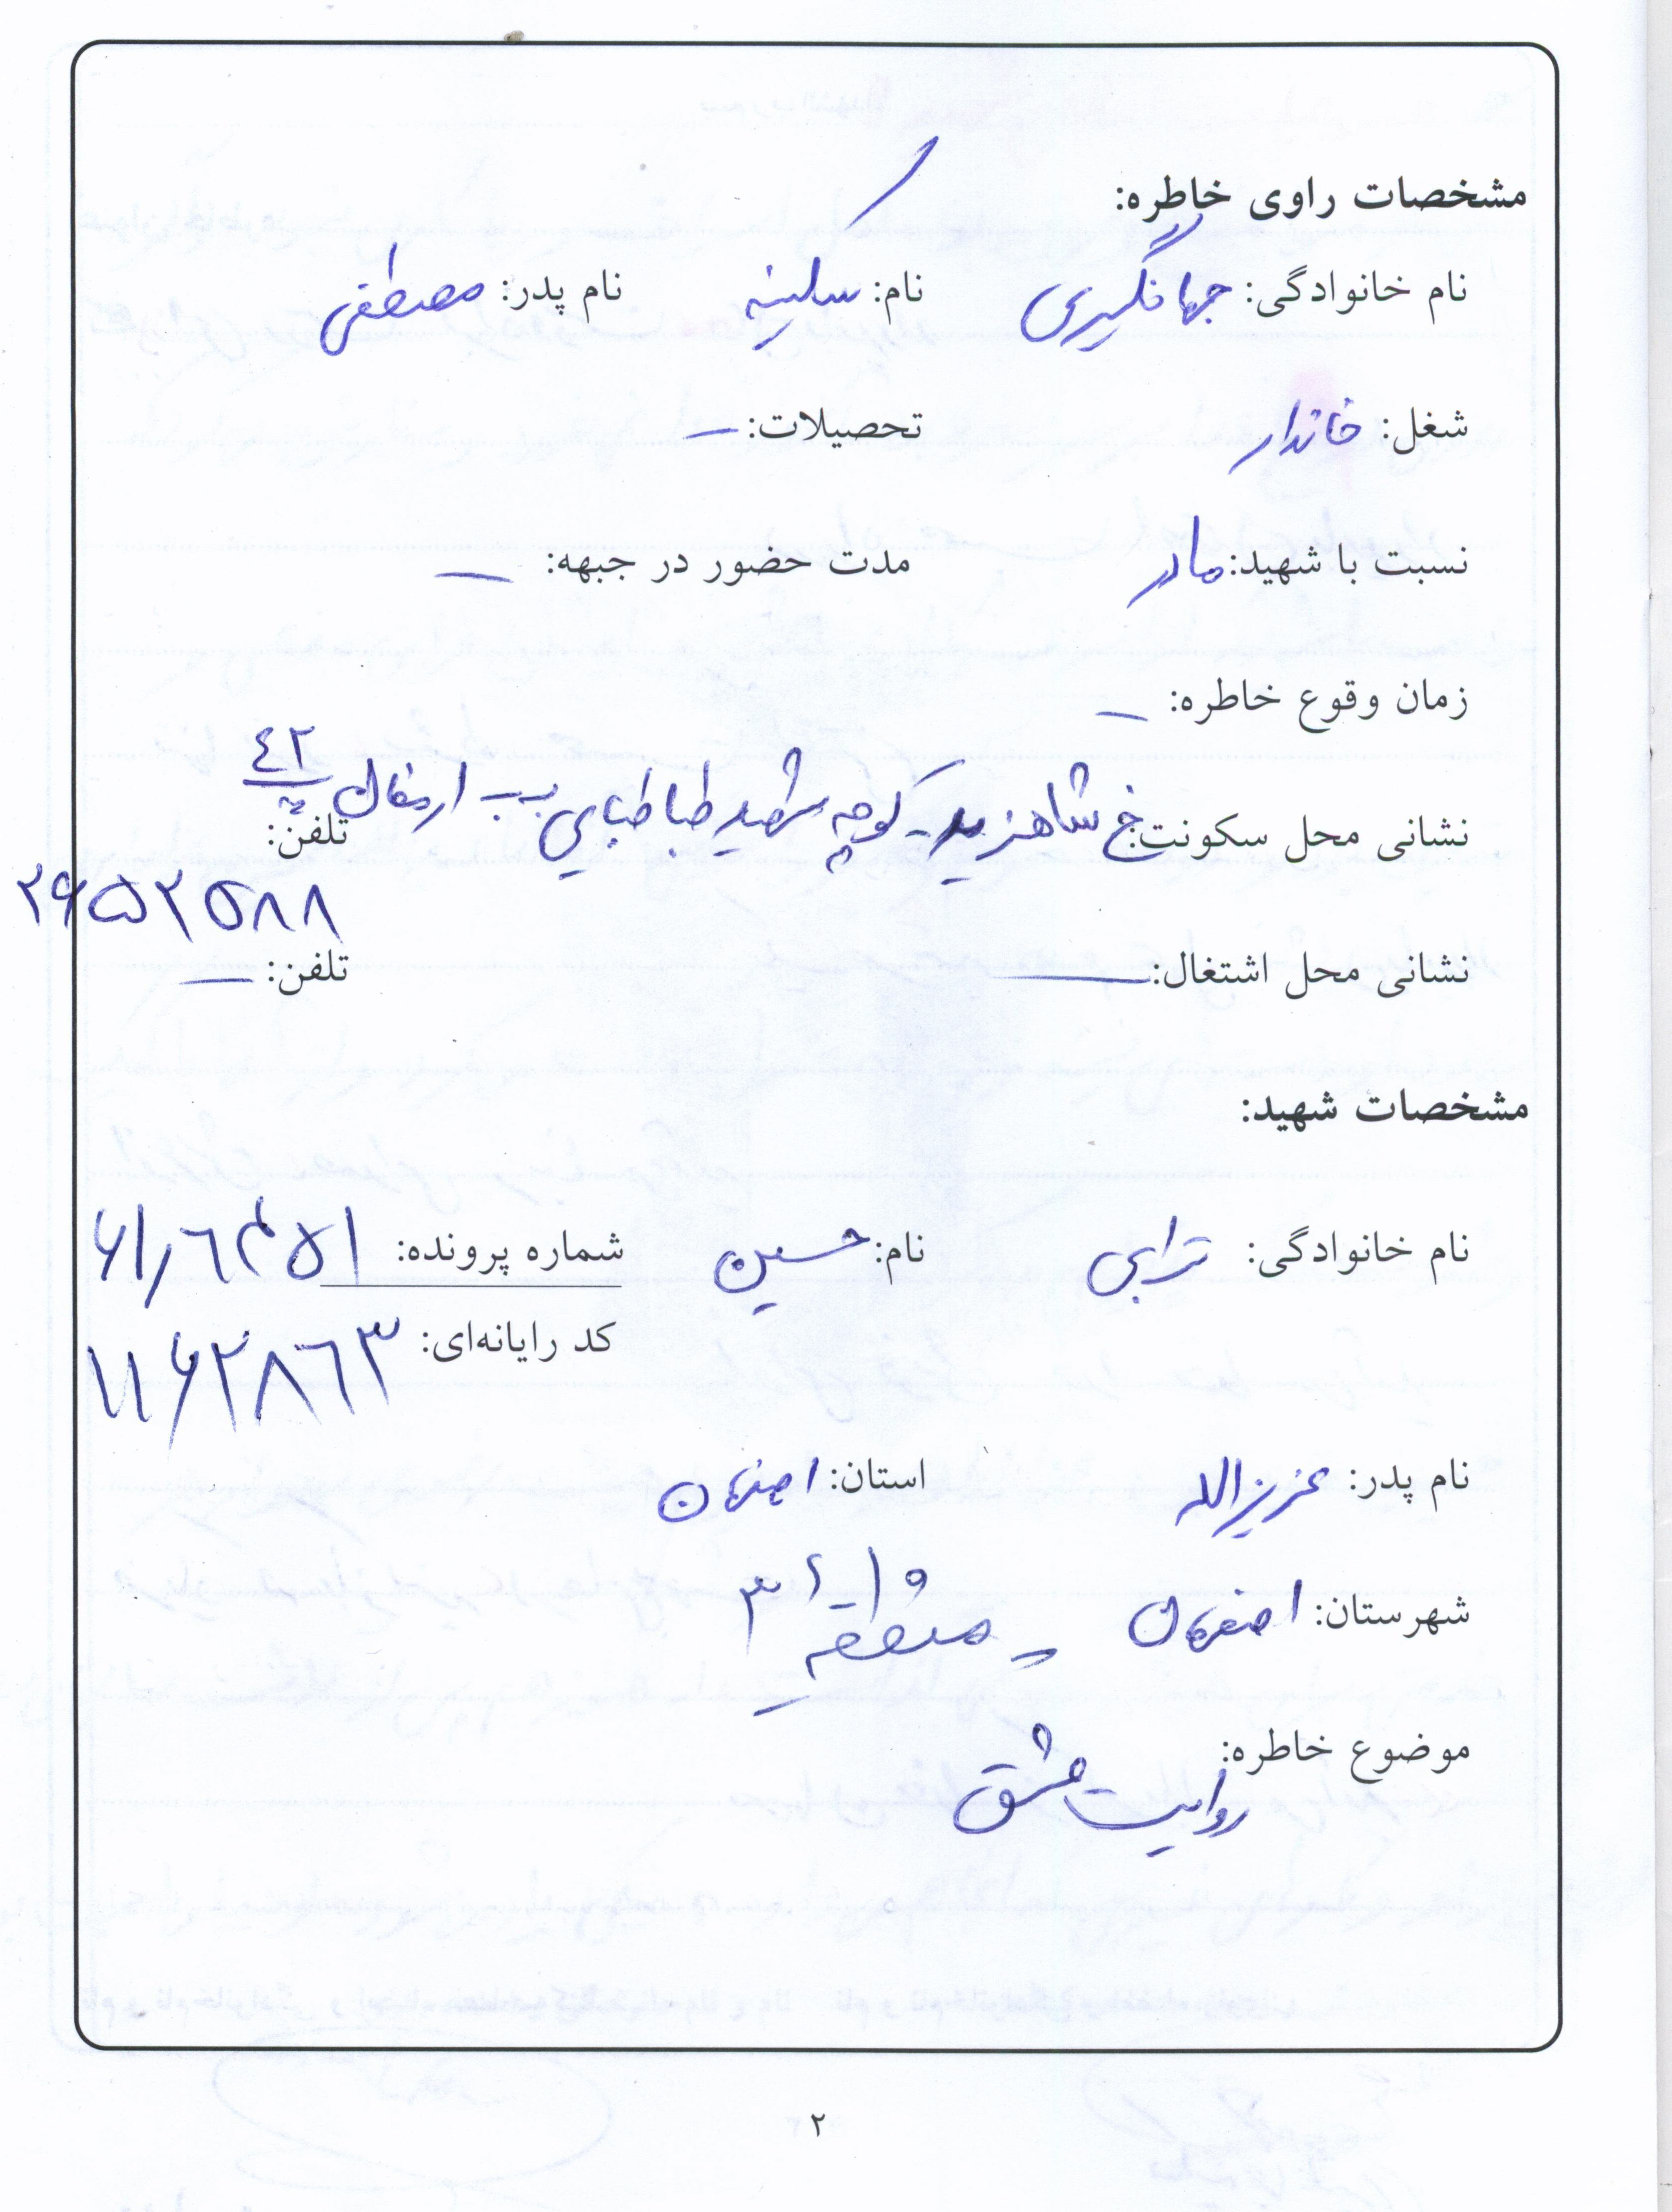 مشخصات راوی خاطره:
نام خانوادگی: جهانگیری نام: سکینه نام پدر: مصطفی
شغل: خانه‌دار تحصیلات: —
نسبت با شهید: مادر مدت حضور در جبهه: —
زمان وقوع خاطره: —
نشانی محل سکونت: خ شاهزید - کوچه شهید طباطبایی ب ب ارغوان ۴۲ تلفن:
۲۶۵۲۵۸۸
نشانی محل اشتغال: — تلفن: —
مشخصات شهید:
نام خانوادگی: ترابی نام: حسین شماره پرونده: ۶۱٫۶۴۵۱
کد رایانه‌ای: ۱۱۶۲۸۶۳
نام پدر: عزیزاله استان: اصفهان
شهرستان: اصفهان - منطقه ۳
موضوع خاطره:
روایت عشق
۲